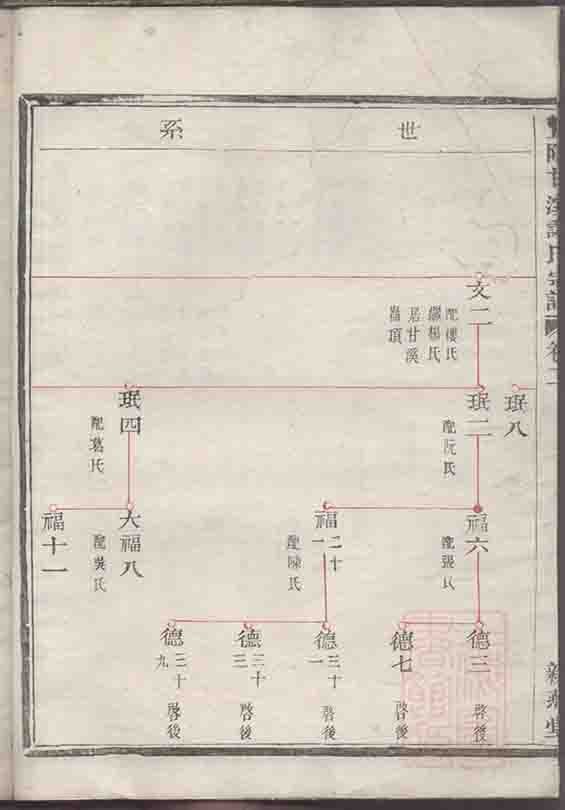 世系
文二
配樓氏
繼楊氏
居甘溪
珉八
珉二
配阮氏
珉四
配葛氏
福六
配張氏
福二十一
配陳氏
大福八
配吳氏
福十一
德三
啓後
德七
啓後
德三十一
啓後
德三十三
啓後
德三十九
啓後